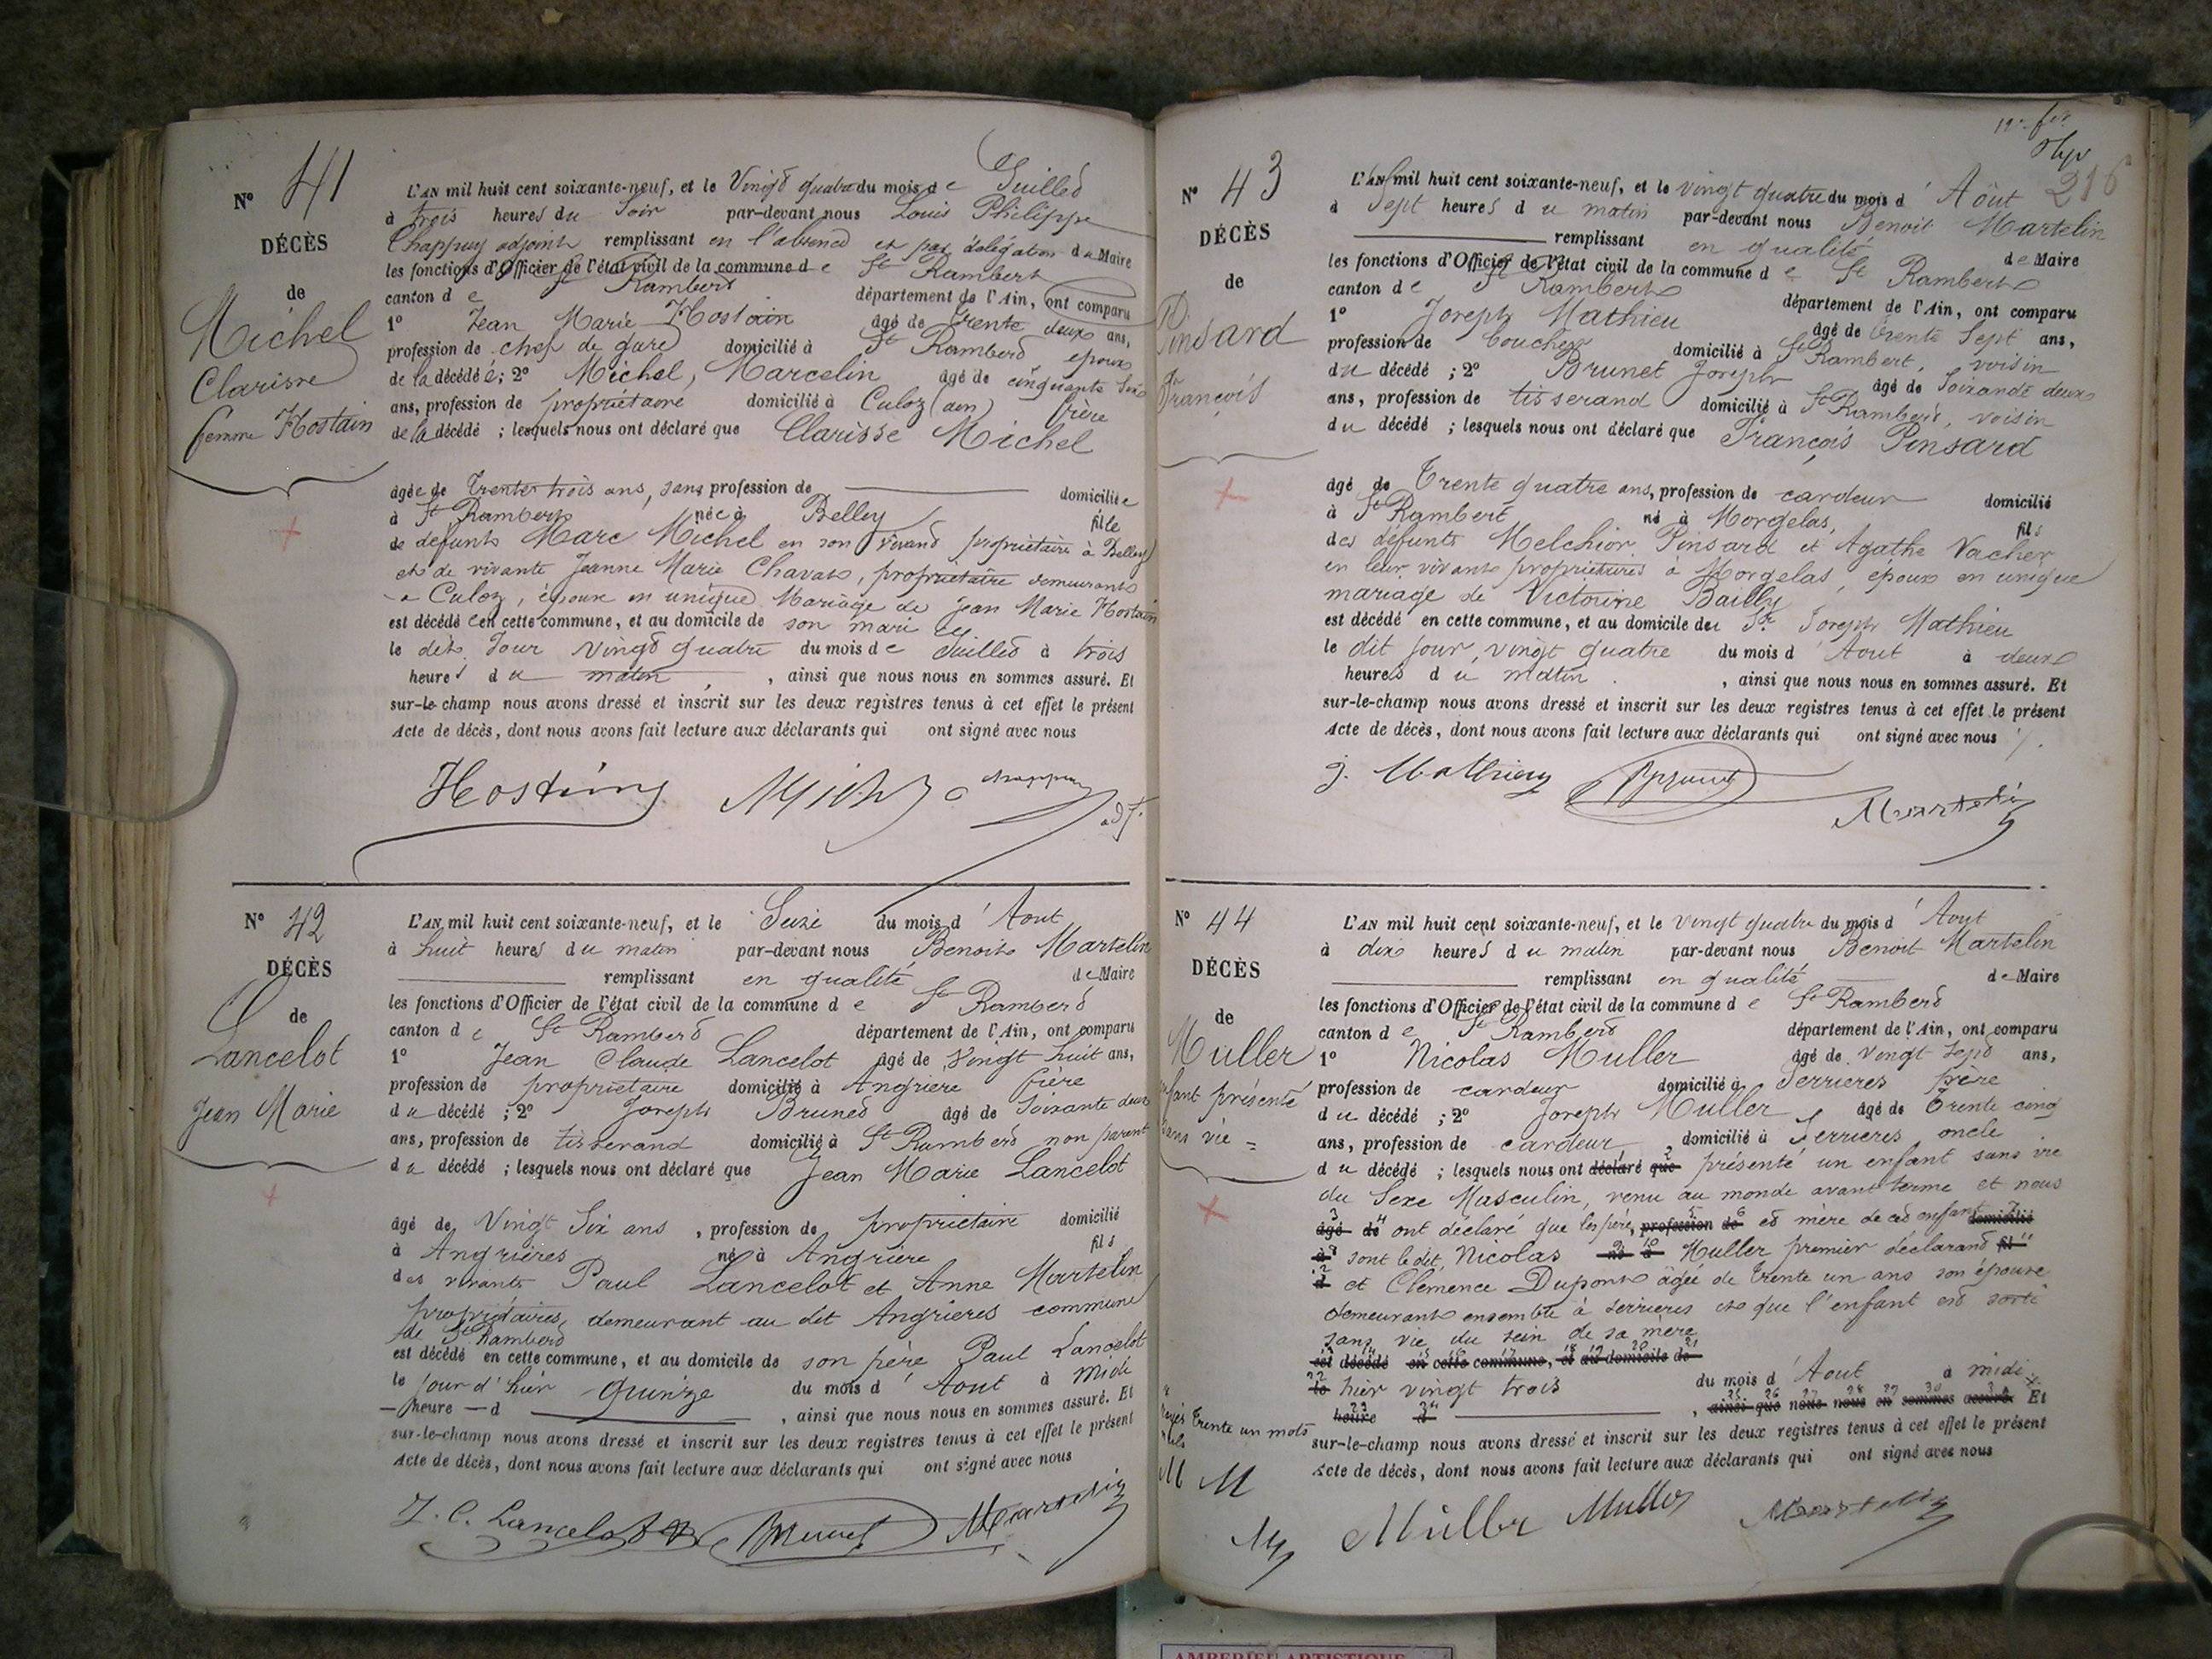 N° 41
DÉCÈS
de
Michel
Clarisse
femme Hostain
L'AN mil huit cent soixante-neuf, et le Vingt quatre du mois de Juillet
à trois heures du Soir par-devant nous Louis Philippe
Chappuy adjoint remplissant en l'absence et par délégation du Maire
les fonctions d'Officier de l'état civil de la commune de St Rambert
canton de St Rambert département de l'Ain, ont comparu
1° Jean Marie Hostain âgé de trente deux ans,
profession de chef de gare domicilié à St Rambert époux
de la décédée; 2° Michel, Marcelin âgé de cinquante
ans, profession de propriétaire domicilié à Culoz (ain) frère
de la décédé ; lesquels nous ont déclaré que Clarisse Michel
âgée de Trente trois ans, sans profession de domiciliée
à St Rambert née à Belley fille
de défunt Marc Michel en son vivant propriétaire à Belley
et de vivante Jeanne Marie Chavat, propriétaire demeurant
a Culoz, épouse en unique Mariage de Jean Marie Hostain
est décédé en cette commune, et au domicile de son mari
le dit Jour vingt quatre du mois de Juillet à trois
heures du matin, ainsi que nous nous en sommes assuré. Et
sur-le-champ nous avons dressé et inscrit sur les deux registres tenus à cet effet le présent
Acte de décès, dont nous avons fait lecture aux déclarants qui ont signé avec nous
chappuy adj.
N° 42
DÉCÈS
de
Lancelot
Jean Marie
L'AN mil huit cent soixante-neuf, et le Seize du mois d'Aout
à huit heures du matin par-devant nous Benoit Martelin
remplissant en qualité de Maire
les fonctions d'Officier de l'état civil de la commune de St Rambert
canton de St Rambert département de l'Ain, ont comparu
1° Jean Claude Lancelot âgé de Vingt huit ans,
profession de propriétaire domicilié à Angriere frère
du décédé ; 2° Joseph Brunet âgé de Soixante deux
ans, profession de tisserand domicilié à St Rambert non parent
du décédé ; lesquels nous ont déclaré que Jean Marie Lancelot
âgé de Vingt Six ans, profession de propriétaire domicilié
à Angrières né à Angriere fils
des vivants Paul Lancelot et Anne Martelin
propriétaires, demeurant au dit Angrieres commune
de St Rambert
est décédé en cette commune, et au domicile de son père Paul Lancelot
le jour d'hier quinze du mois d'Aout à midi
heure d , ainsi que nous nous en sommes assuré. Et
sur-le-champ nous avons dressé et inscrit sur les deux registres tenus à cet effet le présent
Acte de décès, dont nous avons fait lecture aux déclarants qui ont signé avec nous
J. C. Lancelot Brunet Martelin
216
N° 43
DÉCÈS
de
Pinsard
François
L'AN mil huit cent soixante-neuf, et le vingt quatre du mois d'Août
à Sept heures du matin par-devant nous Benoit Martelin
remplissant en qualité de Maire
les fonctions d'Officier de l'état civil de la commune de St Rambert
canton de St Rambert département de l'Ain, ont comparu
1° Joseph Mathieu âgé de trente Sept ans,
profession de boucher domicilié à St Rambert, voisin
du décédé ; 2° Brunet Joseph âgé de Soixante deux
ans, profession de tisserand domicilié à St Rambert, voisin
du décédé ; lesquels nous ont déclaré que François Pinsard
âgé de Trente quatre ans, profession de cardeur domicilié
à St Rambert né à Morgelas, fils
des défunts Melchior Pinsard et Agathe Vacher
en leur vivant propriétaires à Morgelas époux en unique
mariage de Victorine Bailly
est décédé en cette commune, et au domicile du Sr Joseph Mathieu
le dit jour, vingt quatre du mois d'Aout à deux
heures du matin, ainsi que nous nous en sommes assuré. Et
sur-le-champ nous avons dressé et inscrit sur les deux registres tenus à cet effet le présent
Acte de décès, dont nous avons fait lecture aux déclarants qui ont signé avec nous
J. Mathieu Brunet Martelin
N° 44
DÉCÈS
de
Muller
enfant présenté
sans vie =
L'AN mil huit cent soixante-neuf, et le vingt quatre du mois d'Aout
à dix heures du matin par-devant nous Benoit Martelin
remplissant en qualité de Maire
les fonctions d'Officier de l'état civil de la commune de St Rambert
canton de St Rambert département de l'Ain, ont comparu
1° Nicolas Muller âgé de vingt sept ans,
profession de cardeur domicilié à Serrieres père
du décédé ; 2° Joseph Muller âgé de trente cinq
ans, profession de cardeur, domicilié à Serrieres, oncle
du décédé ; lesquels nous ont déclaré que présenté un enfant sans vie
du Sexe Masculin, venu au monde avant terme et nous
âgé de ont déclaré que les père, profession de et mère de cet enfant domicilié
à sont le dit, Nicolas né à Muller premier déclarant fil
d et Clemence Dupont âgée de trente un ans son épouse
demeurant ensemble à Serrieres et que l'enfant est sorti
sans vie du sein de sa mère
est décédé en cette commune, et au domicile de
le hier vingt trois du mois d'Aout à midi
heure d , ainsi que nous nous en sommes assuré. Et
sur-le-champ nous avons dressé et inscrit sur les deux registres tenus à cet effet le présent
Acte de décès, dont nous avons fait lecture aux déclarants qui ont signé avec nous
Trente un mots
M M
Müller Muller Martelin
AMBERIEU ARTISTIQUE